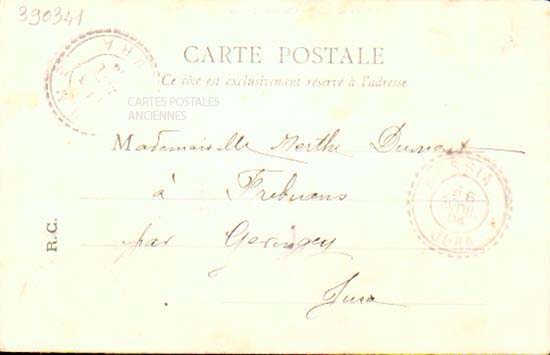 390341
CARTE POSTALE
Ce côté est exclusivement réservé à l'adresse
CARTES POSTALES
ANCIENNES
Mademoiselle Merthe Dumont
à Frébuans
par Gevingey
Jura
R.C.
JURA